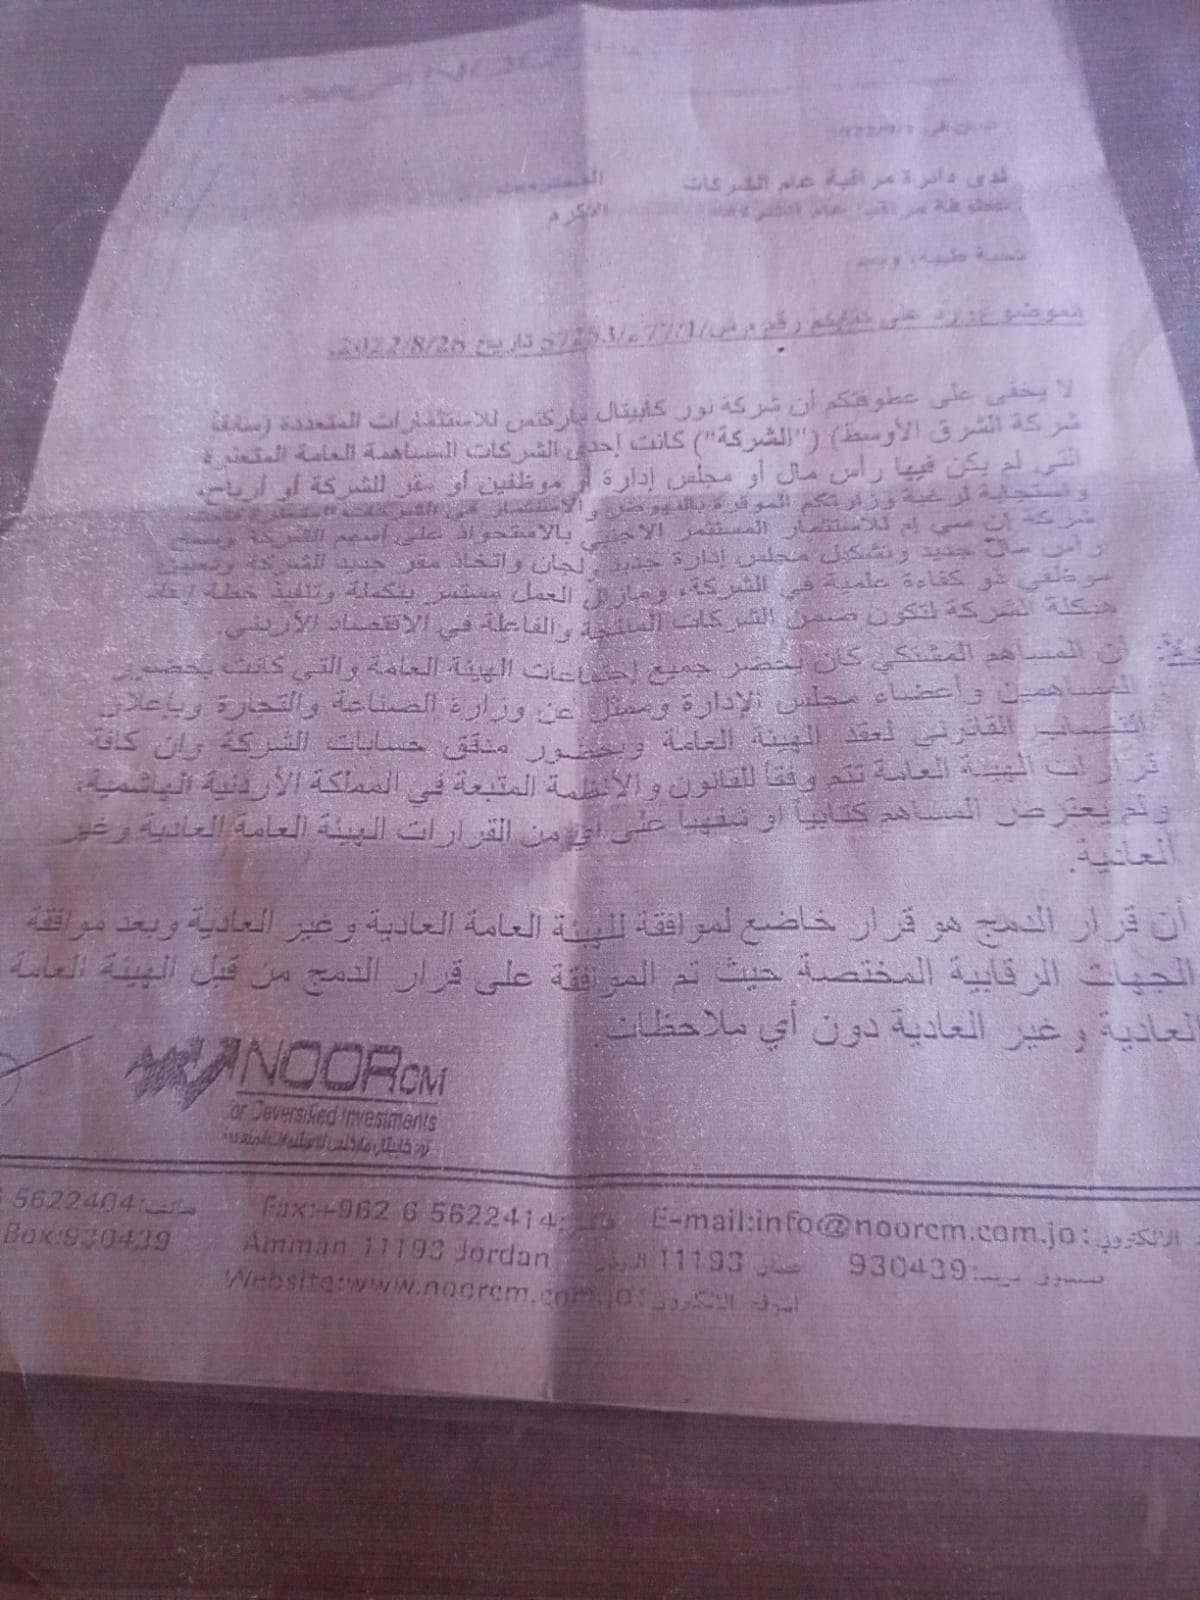 لدى دائرة مراقبة عام الشركات المحترمين
عطوفة مراقب عام الشركات الأكرم
تحية طيبة، وبعد
الموضوع: رد على كتابكم رقم تاريخ 2022/8/26.
لا يخفى على عطوفتكم أن شركة نور كابيتال ماركتس للاستثمارات المتعددة (سابقا
شركة الشرق الأوسط) ("الشركة") كانت إحدى الشركات المساهمة العامة المتعثرة
التي لم يكن فيها رأس مال أو مجلس إدارة أو موظفين أو مقر للشركة أو أرباح،
واستجابة لرغبة وزارتكم الموقرة بالنهوض والاستثمار في الشركات المتعثرة قامت
شركة إن سي إم للاستثمار المستثمر الاجنبي بالاستحواذ على أسهم الشركة
رأس مال جديد وتشكيل مجلس إدارة جديد ولجان واتخاذ مقر جديد للشركة وتعيين
موظفي ذو كفاءة علمية في الشركة، ومازال العمل مستمر بتكملة وتنفيذ خطة إعادة
هيكلة الشركة لتكون ضمن الشركات المنتجة والفاعلة في الاقتصاد الأردني.
أن المساهم المشتكي كان بحضر جميع إجتماعات الهيئة العامة والتي كانت بحضور
المساهمين وأعضاء مجلس الإدارة وممثل عن وزارة الصناعة والتجارة وبإعلان
النصاب القانوني لعقد الهيئة العامة وبحضور مدقق حسابات الشركة وان كافة
قرارات الهيئة العامة تتم وفقاً للقانون والأنظمة المتبعة في المملكة الأردنية الهاشمية،
ولم يعترض المساهم كتابياً او شفهياً على أي من القرارات الهيئة العامة العادية وغير
العادية.
أن قرار الدمج هو قرار خاضع لموافقة للهيئة العامة العادية وغير العادية وبعد موافقة
الجهات الرقابية المختصة حيث تم الموافقة على قرار الدمج من قبل الهيئة العامة
العادية وغير العادية دون أي ملاحظات.
NOORCM
or Deversified Investments
نور كابيتال ماركتس للاستثمارات المتعددة
5622404:هاتف Fax:+962 6 5622414:فاكس E-mail:info@noorcm.com.jo:الالكتروني
Box:930439 Amman 11193 Jordan عمان 11193 الاردن 930439:صندوق بريد
Website:www.noorcm.com.jo:الموقع الالكتروني